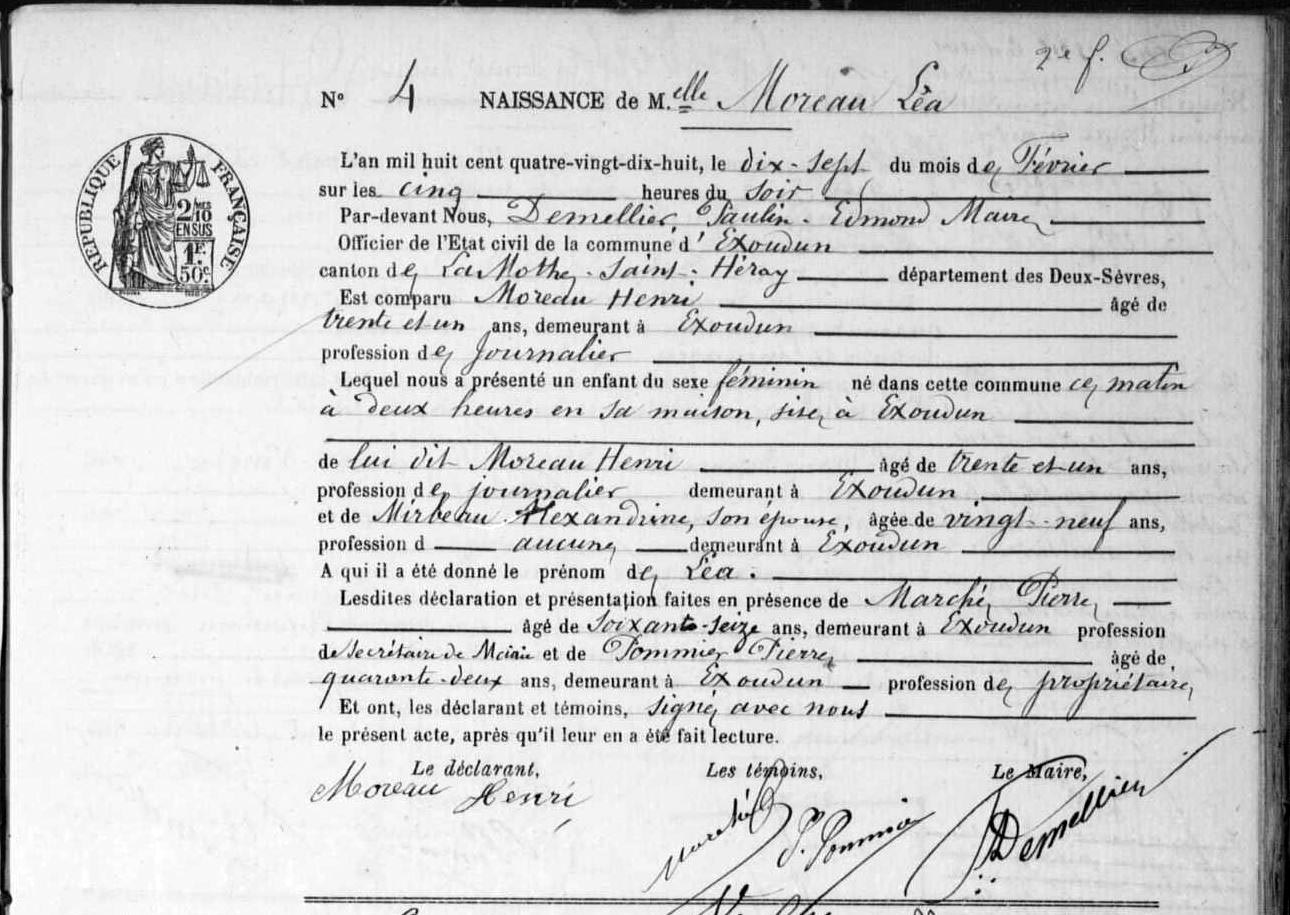 2e f.
N° 4 NAISSANCE de M.elle Moreau Léa
L'an mil huit cent quatre-vingt-dix-huit, le dix-sept du mois de Février
sur les cinq heures du soir
Par-devant Nous, Demellier, Paulin Edmond Maire
Officier de l'Etat civil de la commune d'Exoudun
canton de La Mothe-Saint-Héray département des Deux-Sèvres,
Est comparu Moreau Henri âgé de
trente et un ans, demeurant à Exoudun
profession de Journalier
Lequel nous a présenté un enfant du sexe féminin né dans cette commune ce matin
à deux heures en sa maison, sise à Exoudun
de lui dit Moreau Henri âgé de trente et un ans,
profession de journalier demeurant à Exoudun
et de Mirbeau Alexandrine, son épouse, âgée de vingt-neuf ans,
profession d aucune demeurant à Exoudun
A qui il a été donné le prénom de Léa.
Lesdites déclaration et présentation faites en présence de Marché Pierre
âgé de soixante-seize ans, demeurant à Exoudun profession
de Secrétaire de Mairie et de Pommier Pierre âgé de
quarante-deux ans, demeurant à Exoudun profession de propriétaire
Et ont, les déclarant et témoins, signé avec nous
le présent acte, après qu'il leur en a été fait lecture.
Le déclarant, Les témoins, Le Maire,
Moreau Henri Marché P. Pommier Demellier
RÉPUBLIQUE FRANÇAISE
2/10 MES
EN SUS
1F.
50c